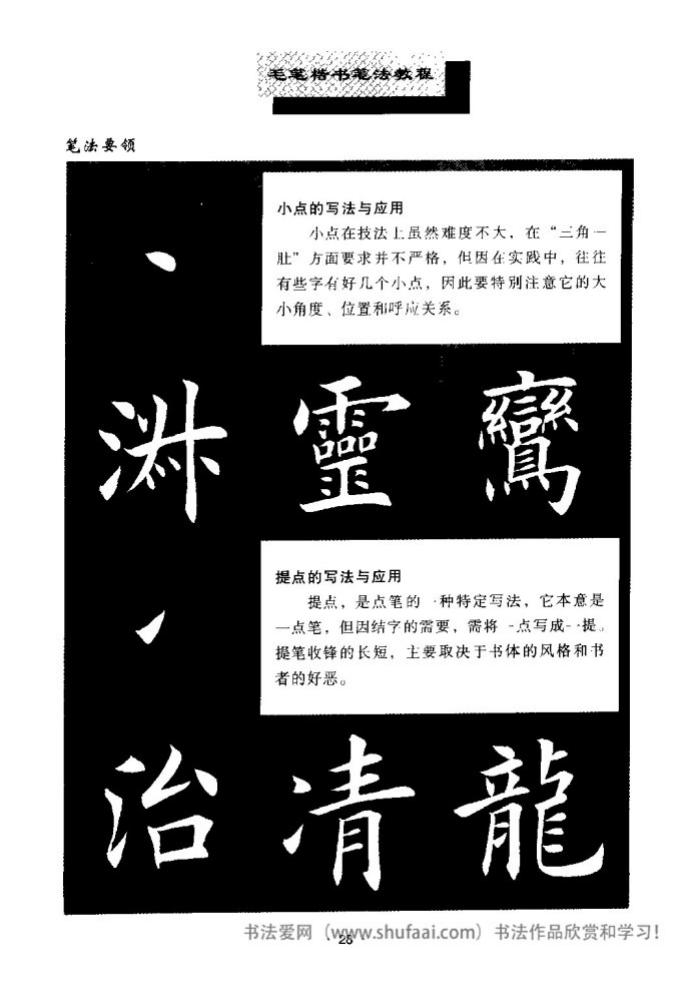 毛笔楷书笔法教程
笔法要领
小点的写法与应用
小点在技法上虽然难度不大，在“三角一
肚”方面要求并不严格，但因在实践中，往往
有些字有好几个小点，因此要特别注意它的大
小角度、位置和呼应关系。
靈 鸞
提点的写法与应用
提点，是点笔的一种特定写法，它本意是
一点笔，但因结字的需要，需将一点写成一提。
提笔收锋的长短，主要取决于书体的风格和书
者的好恶。
治 凊 龍
25
书法爱网（www.shufaai.com）书法作品欣赏和学习！